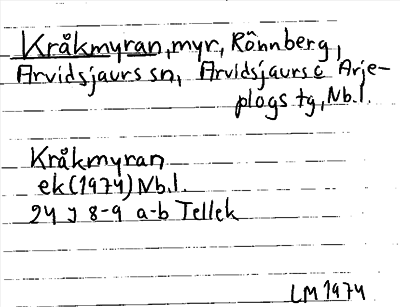 Kråkmyran, myr, Rönnberg,
Arvidsjaurs sn, Arvidsjaurs o Arje-
plogs tg, Nb.l.
Kråkmyran
ek (1974) Nb.l.
24 J 8-9 a-b Tellek
LM 1974